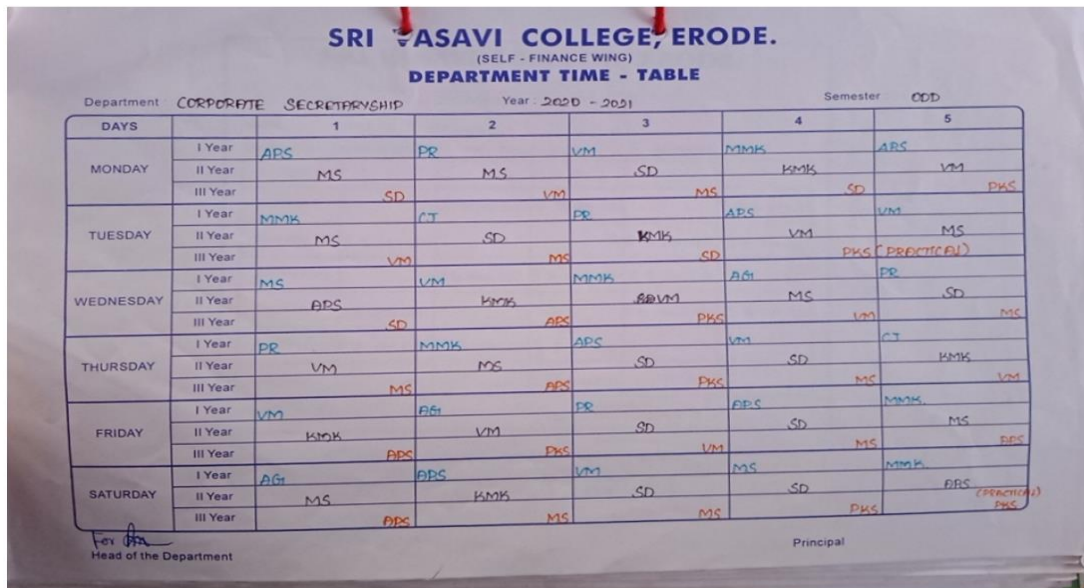 SRI VASAVI COLLEGE, ERODE.
(SELF - FINANCE WING)
DEPARTMENT TIME - TABLE
Department CORPORATE SECRETARYSHIP Year : 2020 - 2021 Semester ODD
DAYS 1 2 3 4 5
MONDAY
I Year APS PR VM MMK APS
II Year MS MS SD KMK VM
III Year SD VM MS SD PKS
TUESDAY
I Year MMK CT PR APS VM
II Year MS SD KMK VM MS
III Year VM MS SD PKS (PRACTICAL)
WEDNESDAY
I Year MS VM MMK AG PR
II Year APS KMK VM MS SD
III Year SD APS PKS VM MS
THURSDAY
I Year PR MMK APS VM CT
II Year VM MS SD SD KMK
III Year MS APS PKS MS VM
FRIDAY
I Year VM AG PR APS MMK.
II Year KMK VM SD SD MS
III Year APS PKS VM MS APS
SATURDAY
I Year AG APS VM MS MMK.
II Year MS KMK SD SD APS
III Year APS MS MS PKS (PRACTICAL) PKS
For
Head of the Department Principal